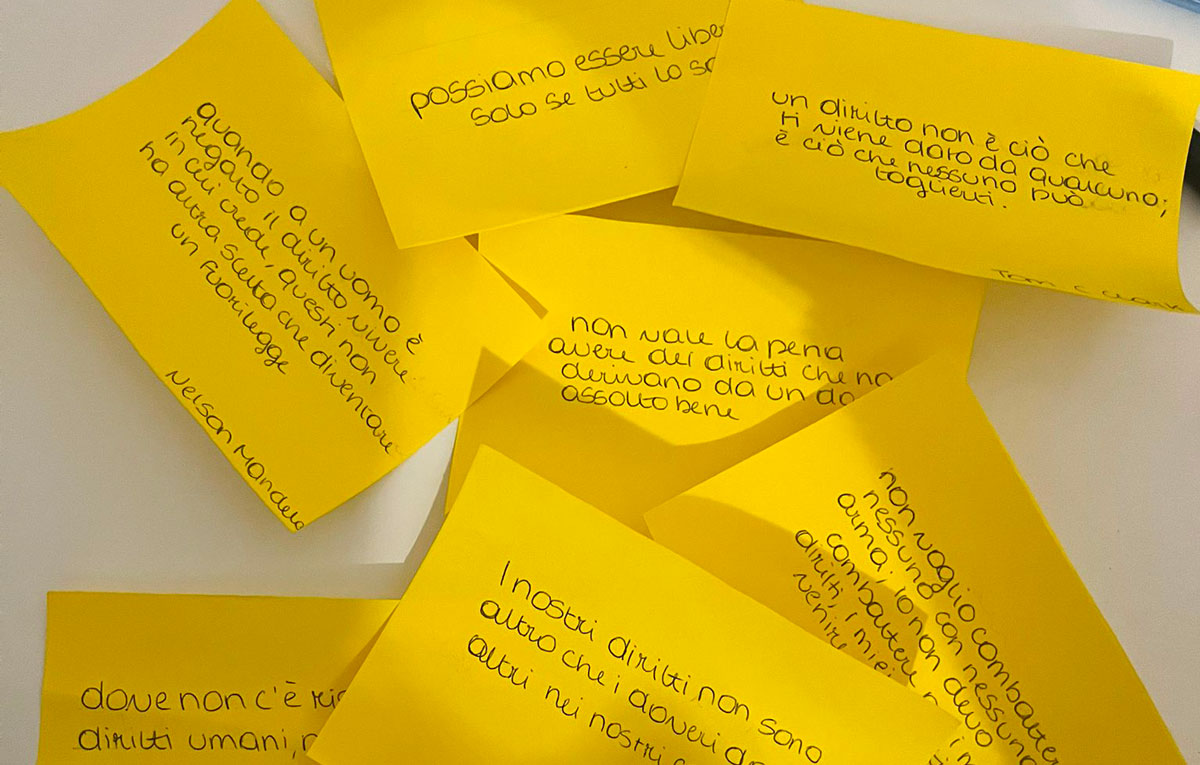 possiamo essere
solo se tutti lo
un diritto non è ciò che
ti viene dato da qualcuno;
è ciò che nessuno può
toglierti.
Tom C Clark
quando a un uomo è
negato il diritto vivere
in cui crede, questi non
ha altra scelta che diventare
un fuorilegge
Nelson Mandela
non vale la pena
avere dei diritti che
derivano da un
assolto bene
non voglio combattere
nessuno con nessuna
arma: io non devo
combattere
diritti, i miei
venire
I nostri diritti non sono
altro che i doveri
altri nei nostri
dove non c'è
diritti umani,